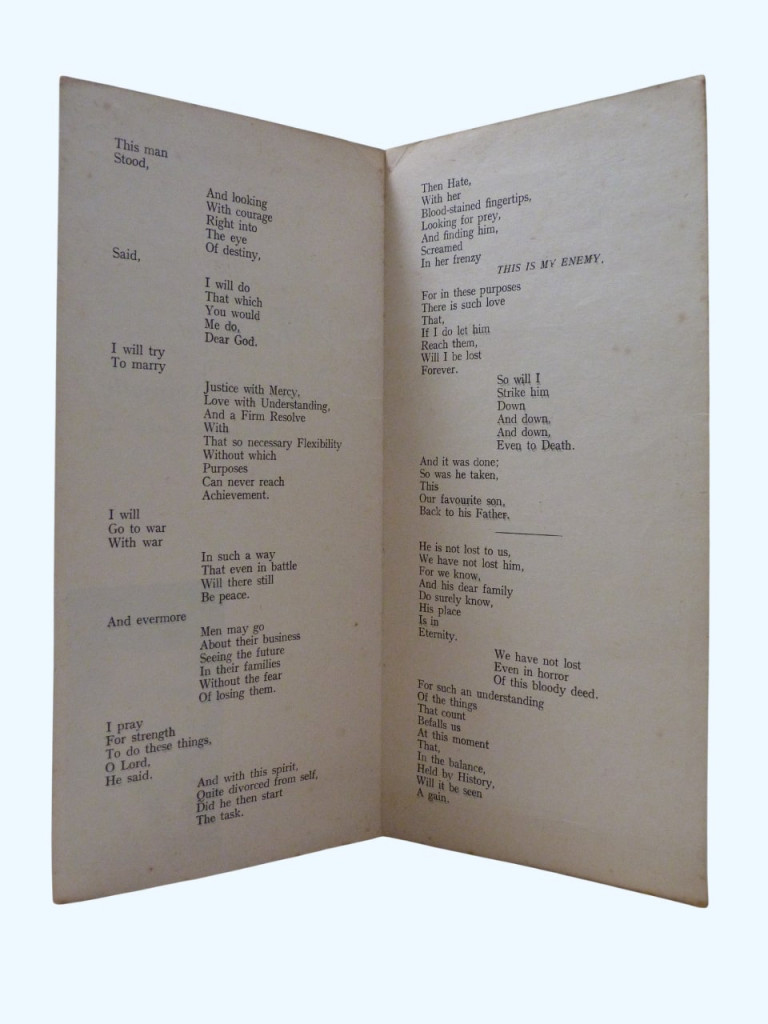 This man
Stood,
And looking
With courage
Right into
The eye
Of destiny,
Said,
I will do
That which
You would
Me do,
Dear God.
I will try
To marry
Justice with Mercy,
Love with Understanding,
And a Firm Resolve
With
That so necessary Flexibility
Without which
Purposes
Can never reach
Achievement.
I will
Go to war
With war
In such a way
That even in battle
Will there still
Be peace.
And evermore
Men may go
About their business
Seeing the future
In their families
Without the fear
Of losing them.
I pray
For strength
To do these things,
O Lord,
He said.
And with this spirit,
Quite divorced from self,
Did he then start
The task.
Then Hate,
With her
Blood-stained fingertips,
Looking for prey,
And finding him,
Screamed
In her frenzy
THIS IS MY ENEMY.
For in these purposes
There is such love
That,
If I do let him
Reach them,
Will I be lost
Forever.
So will I
Strike him
Down
And down,
And down,
Even to Death.
And it was done;
So was he taken,
This
Our favourite son,
Back to his Father.
He is not lost to us,
We have not lost him,
For we know,
And his dear family
Do surely know,
His place
Is in
Eternity.
We have not lost
Even in horror
Of this bloody deed.
For such an understanding
Of the things
That count
Befalls us
At this moment
That,
In the balance,
Held by History,
Will it be seen
A gain.